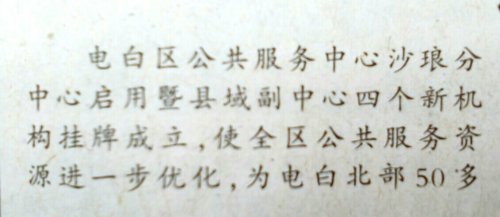 电白区公共服务中心沙琅分
中心启用暨县域副中心四个新机
构挂牌成立,使全区公共服务资
源进一步优化,为电白北部50多